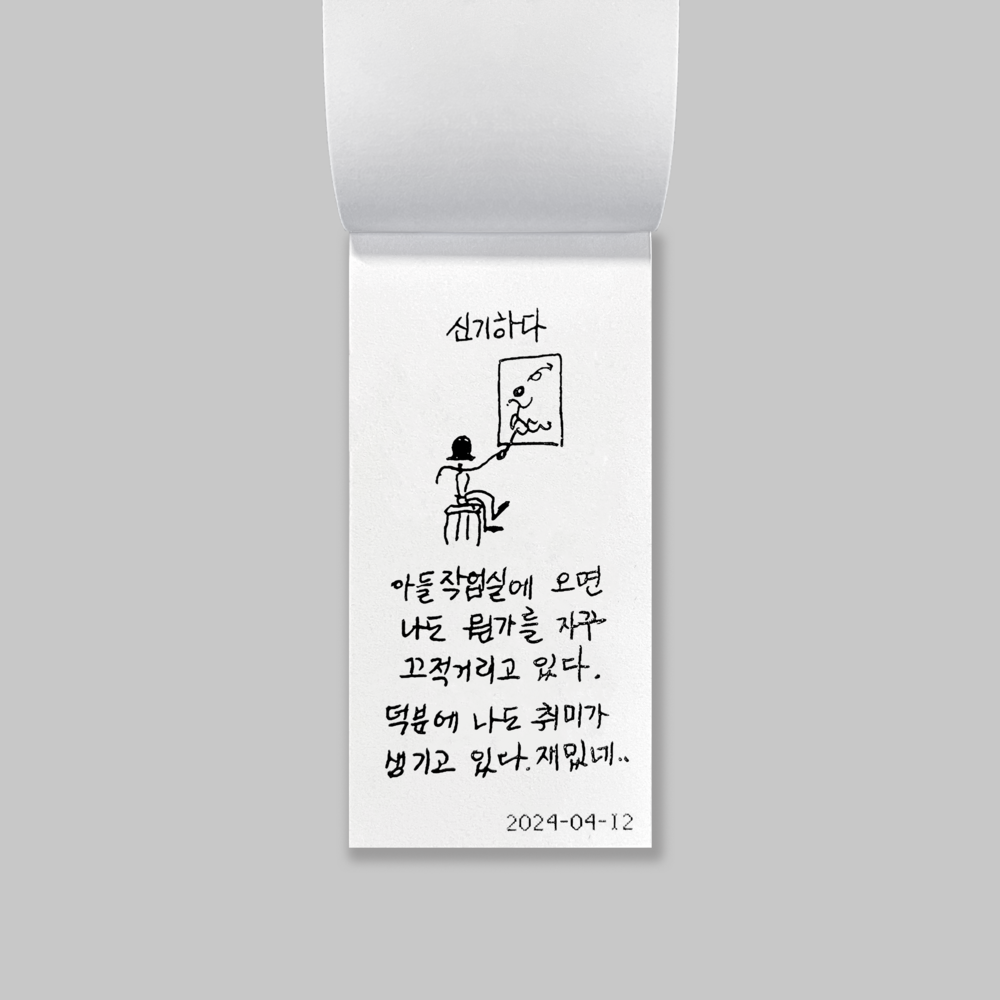 신기하다
아들작업실에 오면
나도 뭔가를 자꾸
끄적거리고 있다.
덕분에 나도 취미가
생기고 있다. 재밌네..
2024-04-12